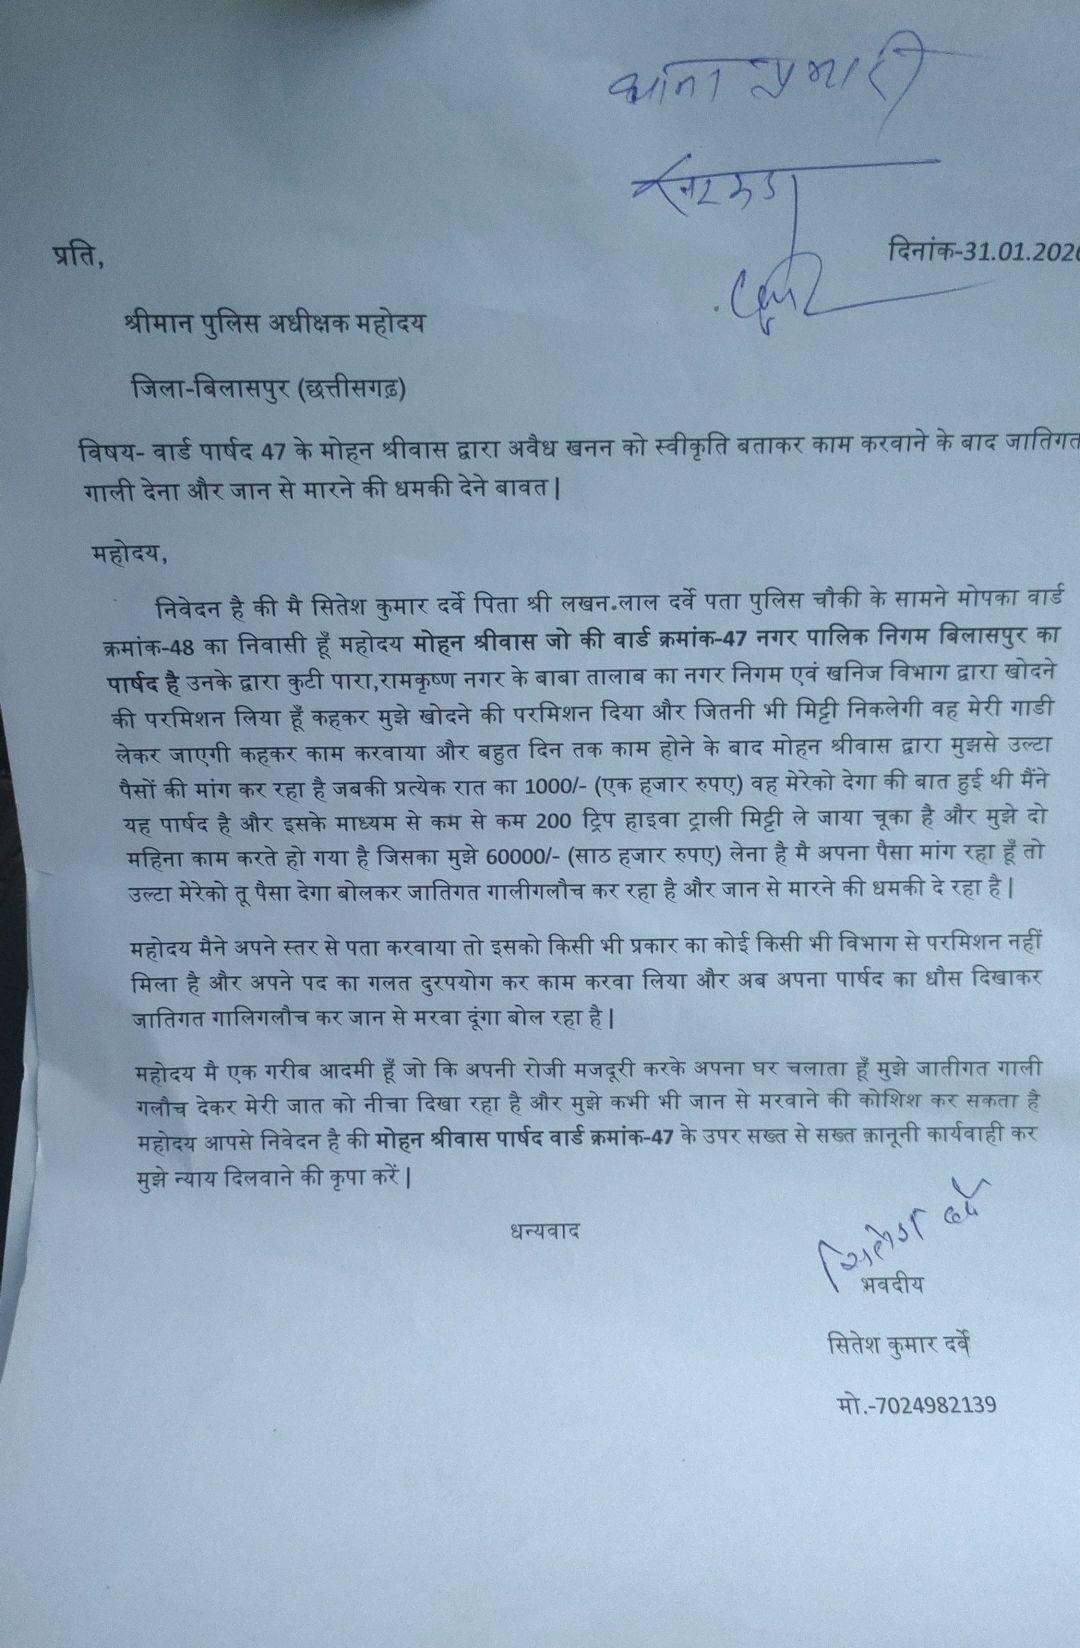 थाना प्रभारी
सरकंडा
प्रति,
दिनांक-31.01.2026
श्रीमान पुलिस अधीक्षक महोदय
जिला-बिलासपुर (छत्तीसगढ़)
विषय- वार्ड पार्षद 47 के मोहन श्रीवास द्वारा अवैध खनन को स्वीकृति बताकर काम करवाने के बाद जातिगत
गाली देना और जान से मारने की धमकी देने बावत|
महोदय,
निवेदन है की मै सितेश कुमार दर्वे पिता श्री लखन.लाल दर्वे पता पुलिस चौकी के सामने मोपका वार्ड
क्रमांक-48 का निवासी हूँ महोदय मोहन श्रीवास जो की वार्ड क्रमांक-47 नगर पालिक निगम बिलासपुर का
पार्षद है उनके द्वारा कुटी पारा,रामकृष्ण नगर के बाबा तालाब का नगर निगम एवं खनिज विभाग द्वारा खोदने
की परमिशन लिया हूँ कहकर मुझे खोदने की परमिशन दिया और जितनी भी मिट्टी निकलेगी वह मेरी गाडी
लेकर जाएगी कहकर काम करवाया और बहुत दिन तक काम होने के बाद मोहन श्रीवास द्वारा मुझसे उल्टा
पैसों की मांग कर रहा है जबकी प्रत्येक रात का 1000/- (एक हजार रुपए) वह मेरेको देगा की बात हुई थी मैंने
यह पार्षद है और इसके माध्यम से कम से कम 200 ट्रिप हाइवा ट्राली मिट्टी ले जाया चूका है और मुझे दो
महिना काम करते हो गया है जिसका मुझे 60000/- (साठ हजार रुपए) लेना है मै अपना पैसा मांग रहा हूँ तो
उल्टा मेरेको तू पैसा देगा बोलकर जातिगत गालीगलौच कर रहा है और जान से मारने की धमकी दे रहा है|
महोदय मैने अपने स्तर से पता करवाया तो इसको किसी भी प्रकार का कोई किसी भी विभाग से परमिशन नहीं
मिला है और अपने पद का गलत दुरपयोग कर काम करवा लिया और अब अपना पार्षद का धौस दिखाकर
जातिगत गालिगलौच कर जान से मरवा दूंगा बोल रहा है|
महोदय मै एक गरीब आदमी हूँ जो कि अपनी रोजी मजदूरी करके अपना घर चलाता हूँ मुझे जातीगत गाली
गलौच देकर मेरी जात को नीचा दिखा रहा है और मुझे कभी भी जान से मरवाने की कोशिश कर सकता है
महोदय आपसे निवेदन है की मोहन श्रीवास पार्षद वार्ड क्रमांक-47 के उपर सख्त से सख्त क़ानूनी कार्यवाही कर
मुझे न्याय दिलवाने की कृपा करें|
धन्यवाद
सितेश दर्वे
भवदीय
सितेश कुमार दर्वे
मो.-7024982139